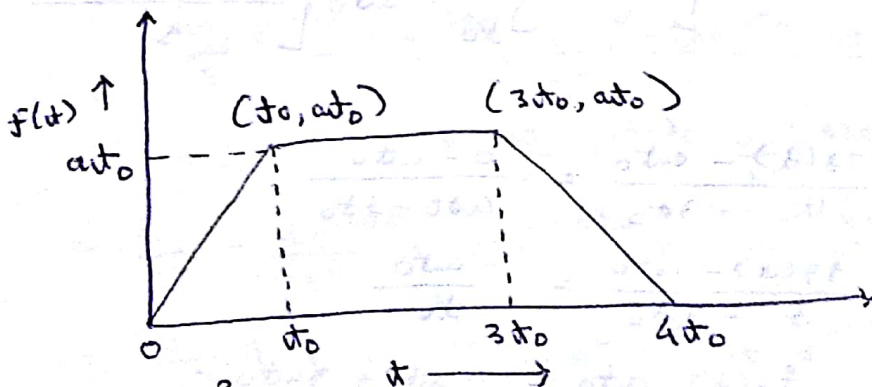 f(t) ↑
(t0, at0)
(3t0, at0)
at0
0
t0
3t0
4t0
t →